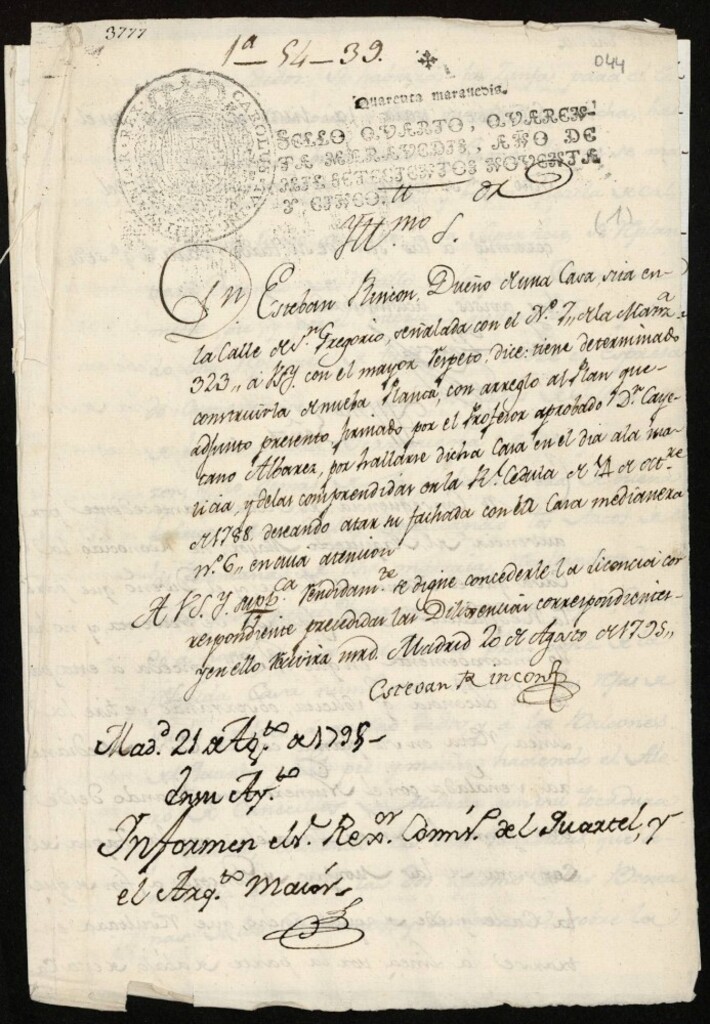 3777
1ª 54-39.
044
Quarenta maravedis.
SELLO QVARTO, QVAREN-
TA MARAVEDIS, AÑO DE
MIL SETECIENTOS NOVENTA
Y CINCO.
CAROLUS
(1)
Yll.mo S.
Dn. Esteban Rincon, Dueño de una Casa, sita en
la Calle de Sn Gregorio, señalada con el Nº 7,, de la Manza
323,, a VSY. con el mayor respeto, dice: tiene determinado
construirla de nueba Planta, con arreglo al Plan que
adjunto presento, firmado por el Profesor aprobado Dn. Caye-
tano Albarez, por hallarse dicha Casa en el dia a la ma-
licia, y de las comprendidas en la Rl. Cedula de 14 de octre
de 1788, deseando atar su fachada con la Casa medianera
nº. 6,, en cuia atencion
A VS.Y. supca rendidamte se digne concederle la Licencia cor-
respondiente precedidas las Diligencias correspondientes
y en ello recivira mrd. Madrid 20 de Agosto de 1795,,
Estevan Rincon
Madd. 21 de Agto de 1795-
En su Ayto
Informen el Sr. Rexor. Comiso. del Quartel, y
el Arqto Maior